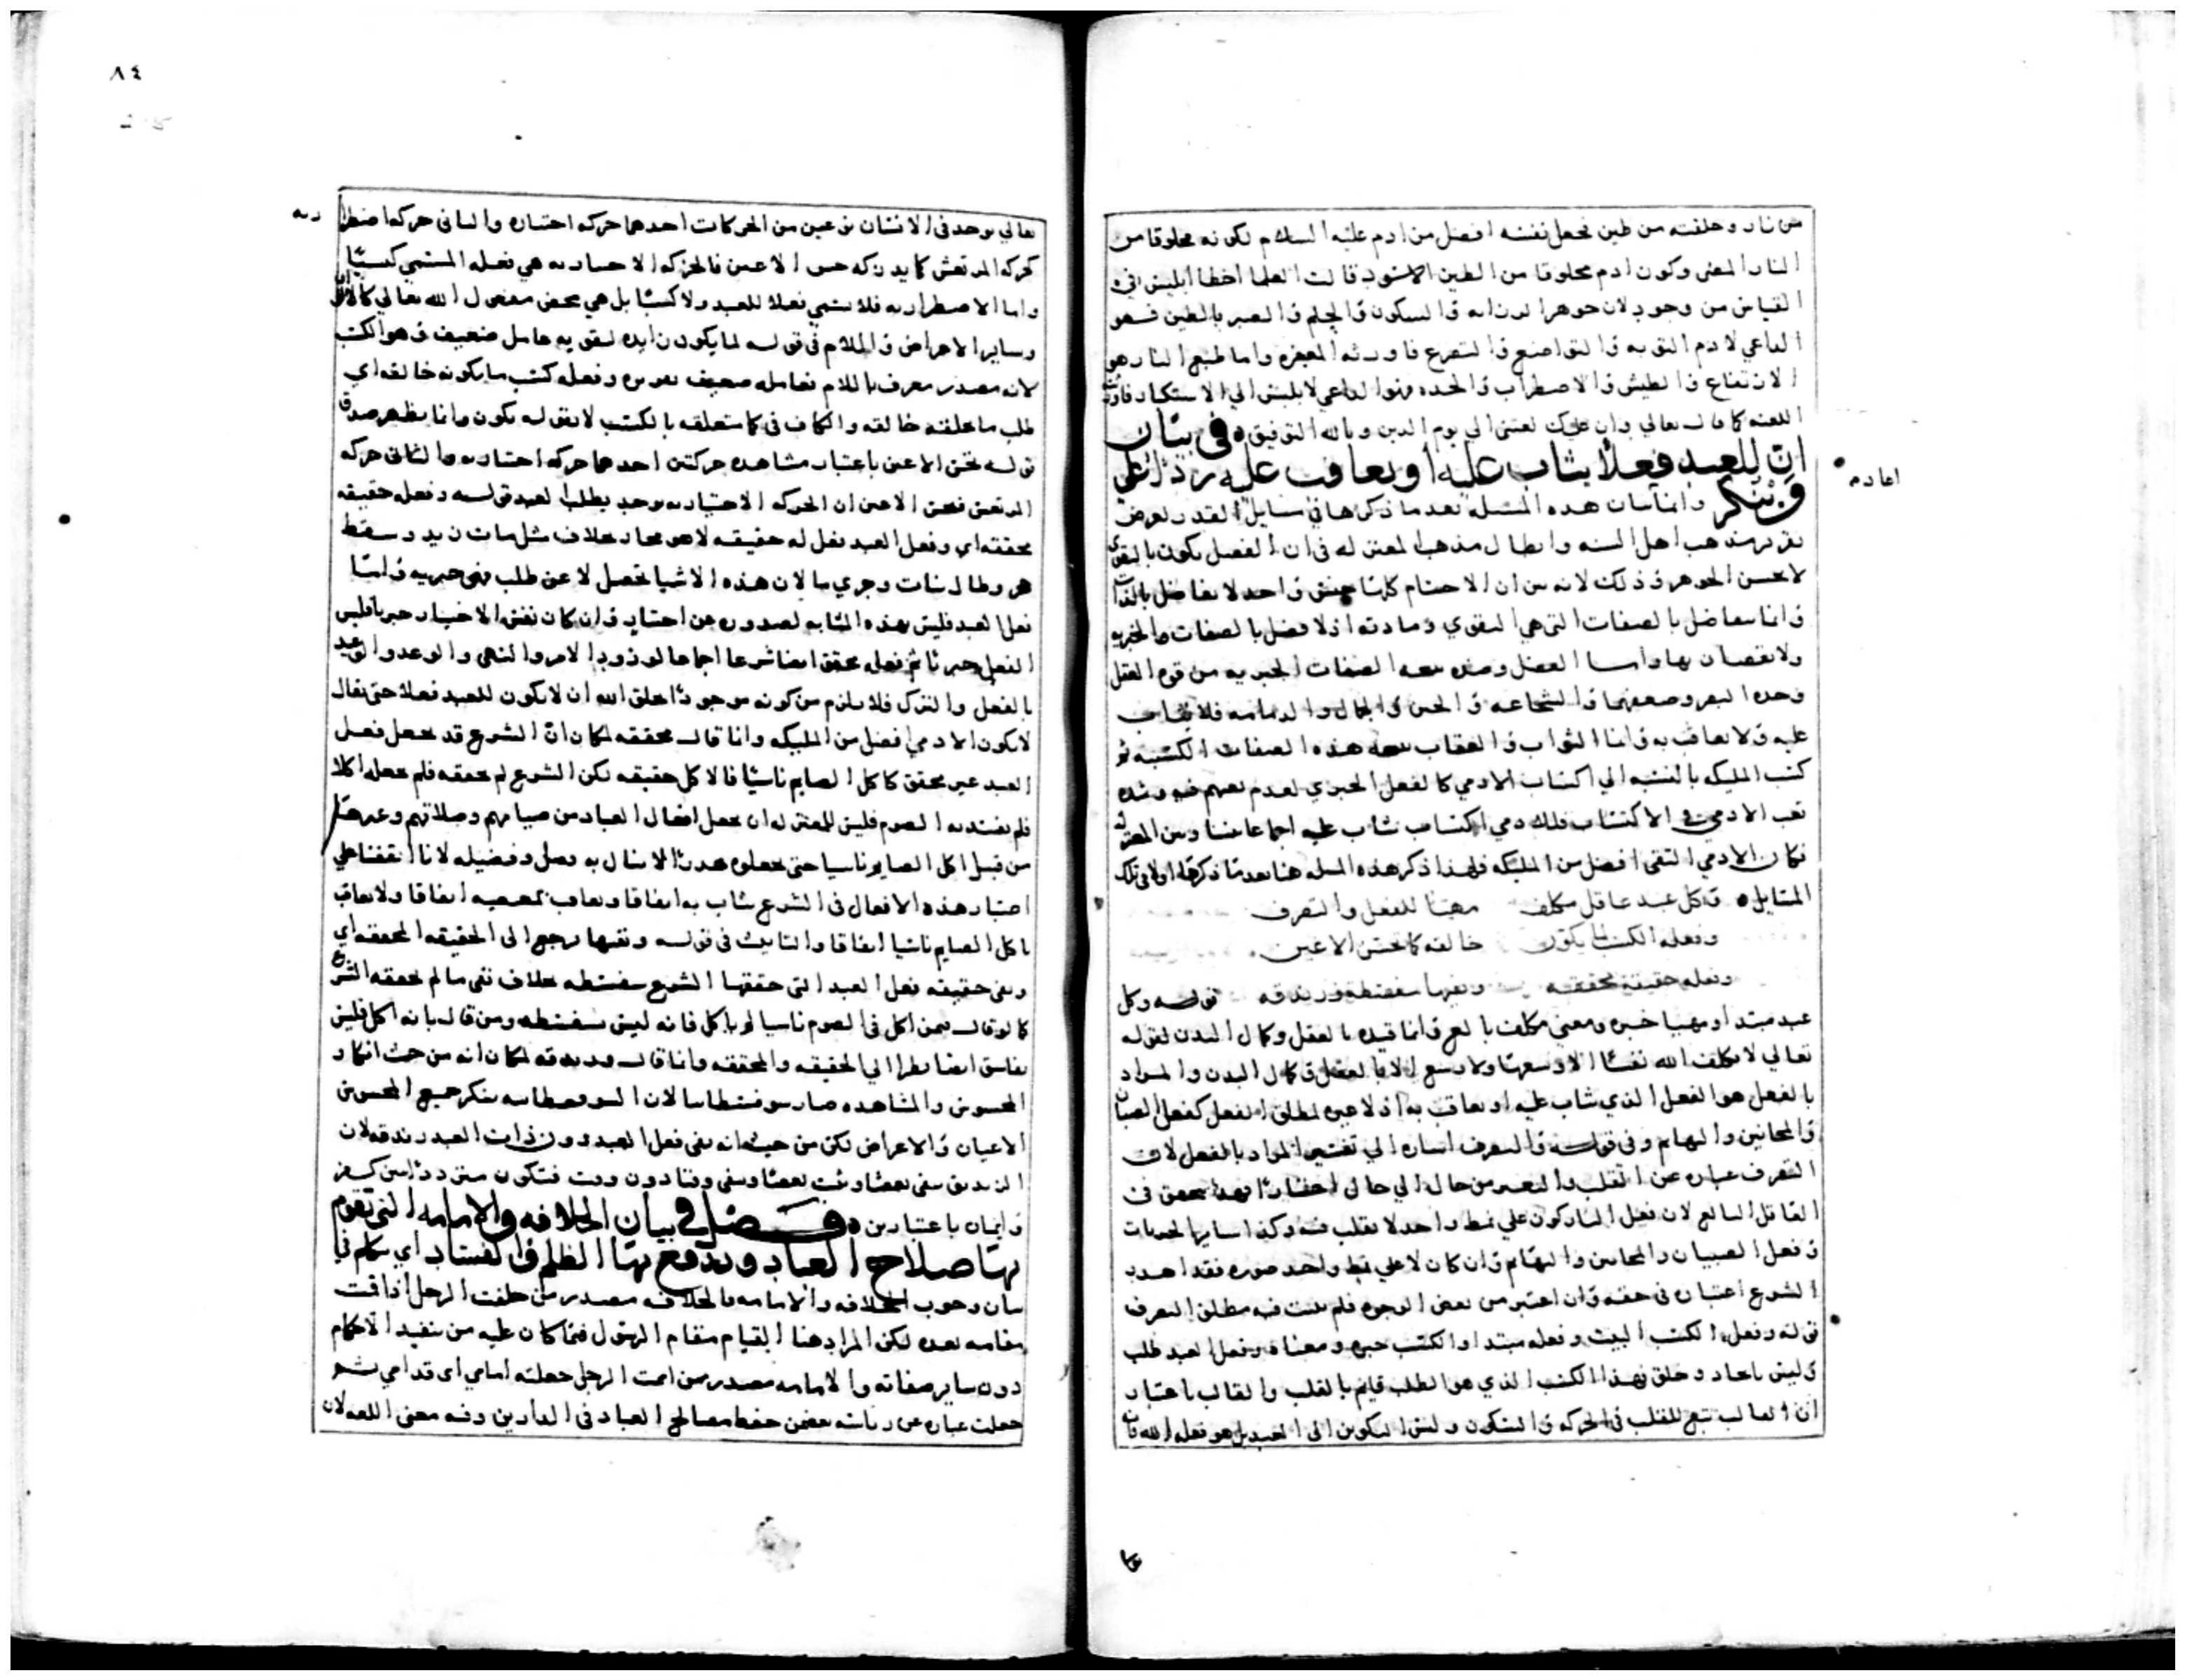 من نار وخلقته من طين فجعل نفسه افضل من ادم عليه السلام لكونه مخلوقا من
النار المضى وكون ادم مخلوقا من الطين الاسود قالت العلما اخطا ابليس في
القياس من وجوه لان جوهر الرزانه والسكون والحلم والصبر بالطين فهو
الداعي لادم التوبه والتواضع والتضرع فاورثه المغفره واما طبع النار هو
الارتفاع والطيش والاضطراب والحده فهو الداعي لابليس الي الاستكبار فاورث
اللعنه كما قال تعالي وان عليك لعنتي الي يوم الدين وبالله التوفيق ه في بيان
ان للعبد فعلا يثاب عليه او يعاقب عليه ردا على
من ينكر وانما بيان هذه المسله بعد ما ذكرها في مسايل القدر لغرض
تقرير مذهب اهل السنه وابطال مذهب المعتزله في ان الفضل يكون بالتقوى
لا بحسن الجوهر وذلك لانه بين ان الاجسام كلها جنس واحد لا تفاضل بالذات
وانما تفاضل بالصفات التي هي التقوي وعبادته اذ لا فضل بالصفات الجبريه
ولا نقصان بها واما الفضل وضده الصفات الجبريه من قوه العقل
وحده البصر وضعفهما والشجاعه والجبن والجمال والدمامه فلا يثاب
عليه ولا يعاقب به وانما الثواب والعقاب هذه الصفات المكتسبه ثم
كسب المليكه بالنسبه الي اكتساب الادمي كالفعل الجبري لعدم تعبهم فيه وشده
تعب الادمي في الاكتساب فللادمي اكتساب يثاب عليه اجماعا بيننا وبين المعتزله
فكان الادمي التقي افضل من المليكه فلهذا ذكر هذه المسله هنا بعد ما ذكرها اولا في تلك
المسايل ه وكل عبد عاقل مكلف مهيا للفعل والتصرف
وفعله الكسب لما يكون خالقه كما تحس الاعين
وفعله حقيقة محققه ونفيها سفسطه وزندقه قوله وكل
عبد مبتدا ومهيا خبره ومعنى مكلف بالغ وانما قيده بالعقل وكمال البدن لقوله
تعالي لا يكلف الله نفسا الا وسعها ولا وسع الا بالعقل وكمال البدن والمراد
بالفعل هو الفعل الذي يثاب عليه او يعاقب به اذ لا عبره لمطلق الفعل كفعل الصبيان
والمجانين والبهايم وفي قوله والتصرف اشاره الي تفسير المراد بالفعل لان
التصرف عباره عن التقلب والتغير من حال الي حال اختيارا فهذا يتحقق في
العاقل البالغ لان فعل النار يكون علي نمط واحد لا تقلب فيه وكذا ساير الجمادات
وفعل الصبيان والمجانين والبهايم وان كان لا علي نمط واحد صوره فقد اهدر
الشرع اعتباره في حقه وان اعتبر من بعض الوجوه فلم يثبت فيه مطلق التصرف
قوله وفعله الكسب البيت وفعله مبتدا والكسب خبره ومعناه وفعل العبد طلب
وليس بايجاد وخلق فهذا الكسب الذي هو الطلب قايم بالقلب والقالب باعتبار
ان القالب تبع للقلب في الحركه والسكون وليس التكوين الى العبد بل هو فعل الله فان
اعادم
٨٤
تعالي يوجد في الانسان نوعين من الحركات احدهما حركه اختياره والثاني حركه اضطرا
ريه
كحركه المرتعش كما يدركه حس الاعين فالحركه الاختياريه هي فعله المسمي كسبيا
واما الاضطراريه فلا يسمي فعلا للعبد ولا كسبا بل هي محض مفعول الله تعالي كالالوان
وساير الاعراض واللام في قوله لما يكون زايده لتقويه عامل ضعيف وهو الكسب
لانه مصدر معرف باللام فعامله ضعيف تقديره وفعله كسب ما يكونه خالقه اي
طلب ما يخلقه خالقه والكاف في كما متعلقه بالكسب لا بقوله يكون وانما يظهر صدق
قوله تحس الاعين باعتبار مشاهده حركتين احدهما حركه اختياريه والثاني حركه
المرتعش فتحس الاعين ان الحركه الاختياريه يوجد بطلب العبد قوله وفعله حقيقه
محققه اي وفعل العبد فعل له حقيقه لا هو مجاز بخلاف مثل مات زيد وسقط
عمرو وطال نبات وجري ما لان هذه الاشيا تحصل لا عن طلب فهي جبريه واما
فعل العبد فليس بهذه المثابه لصدوره عن اختيار وان كان نفس الاختيار جبريا فليس
الفعل جبريا ثم فعله محقق ايضا شرعا اجماعا لورود الامر والنهي والوعد والوعيد
بالفعل والترك فلا يلزم من كونه موجودا بخلق الله ان لا يكون للعبد فعلا حتى يقال
لا يكون الادمي افضل من المليكه وانما قال محققه لمكان ان الشرع قد يجعل فعل
العبد غير محقق كاكل الصايم ناسيا فالاكل حقيقه لكن الشرع لم يحققه فلم يجعله اكلا
فلم يفسد به الصوم فليس للمعتزله ان يجعل افعال العباد من صيامهم وصلاتهم وغيرها
من قبيل اكل الصايم ناسيا حتى يجعلوه هدرا لا ينال به فضل وفضيله لانا اتفقنا علي
اعتبار هذه الافعال في الشرع يثاب به اتفاقا ويعاقب بمعصيه اتفاقا ولا يعاقب
باكل الصايم ناسيا اتفاقا والتانيث في قوله ونفيها يرجع الى الحقيقه المحققه اي
ونفي حقيقه فعل العبد التي حققها الشرع سفسطه بخلاف نفي ما لم يحققه الشرع
كما لو قال فيمن اكل في الصوم ناسيا لم ياكل فانه ليس سفسطه ومن قال بانه اكل فليس
بفاسق ايضا نظرا الي الحقيقه والمحققه وانما قال وزندقه لمكان انه من حيث انكار
المحسوس والمشاهده صار سوفسطاييا لان السوفسطاييه ينكر جميع المحسوس
الاعيان والاعراض لكن من حيث انه نفى فعل العبد دون ذات العبد زندقه لان
الزنديق ينفي بعضا ويثبت بعضا وينفي وقتا دون وقت فيكون مترددا بين كفر
وايمان باعتبارين ه فصل في بيان الخلافه والامامه التي تقوم
بها صلاح العباد ويدفع بها الظلم والفساد اي يتكلم في
بيان وجوب الخلافه والامامه فالخلافه مصدر من خلفت الرجل اذا قمت
مقامه بعده لكن المراد هنا القيام مقام الرسول فيما كان عليه من تنفيذ الاحكام
دون ساير صفاته والامامه مصدر من اممت الرجل جعلته امامي اي قدامي ثم
جعلت عباره عن رياسه تضمن حفظ مصالح العباد في الدارين وفيه معنى اللغه لان